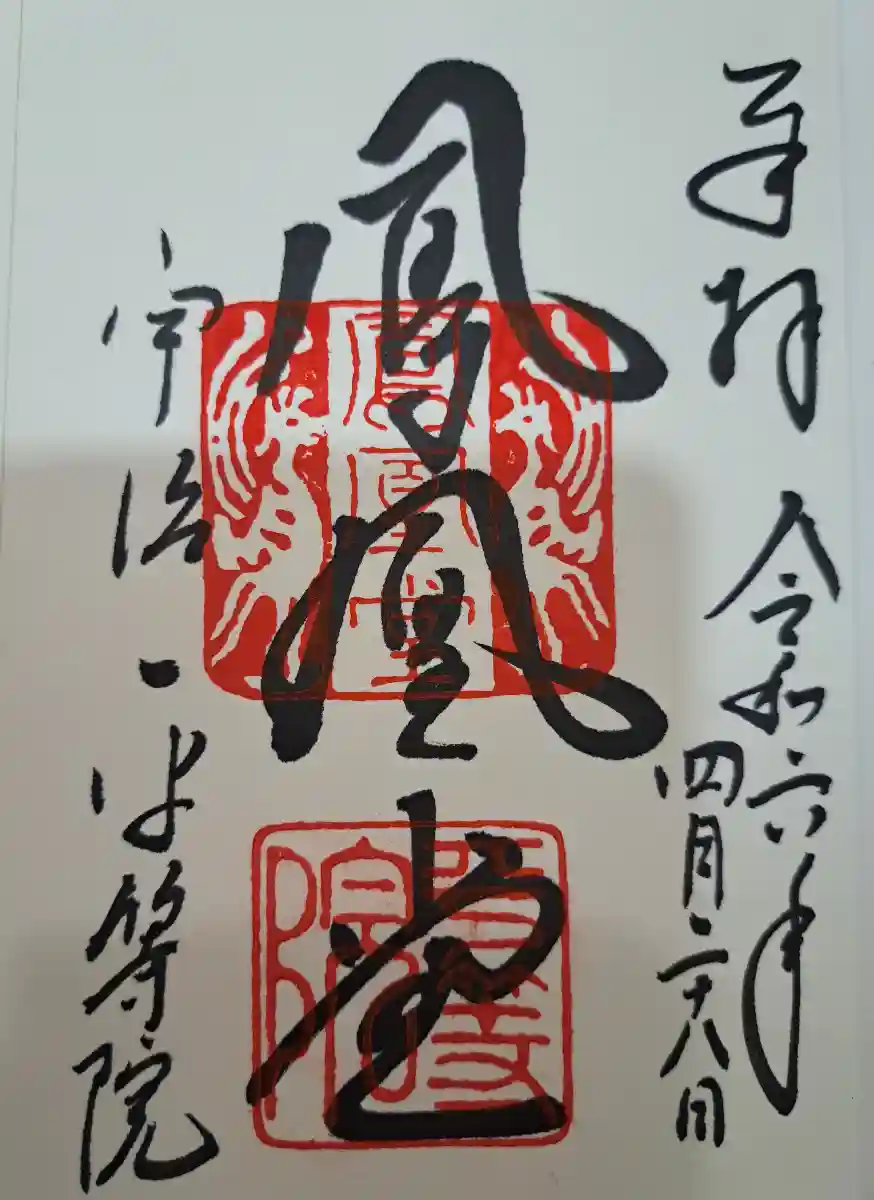 奉拝 令和六年
四月二十八日
鳳凰堂
宇治 平等院
鳳凰堂